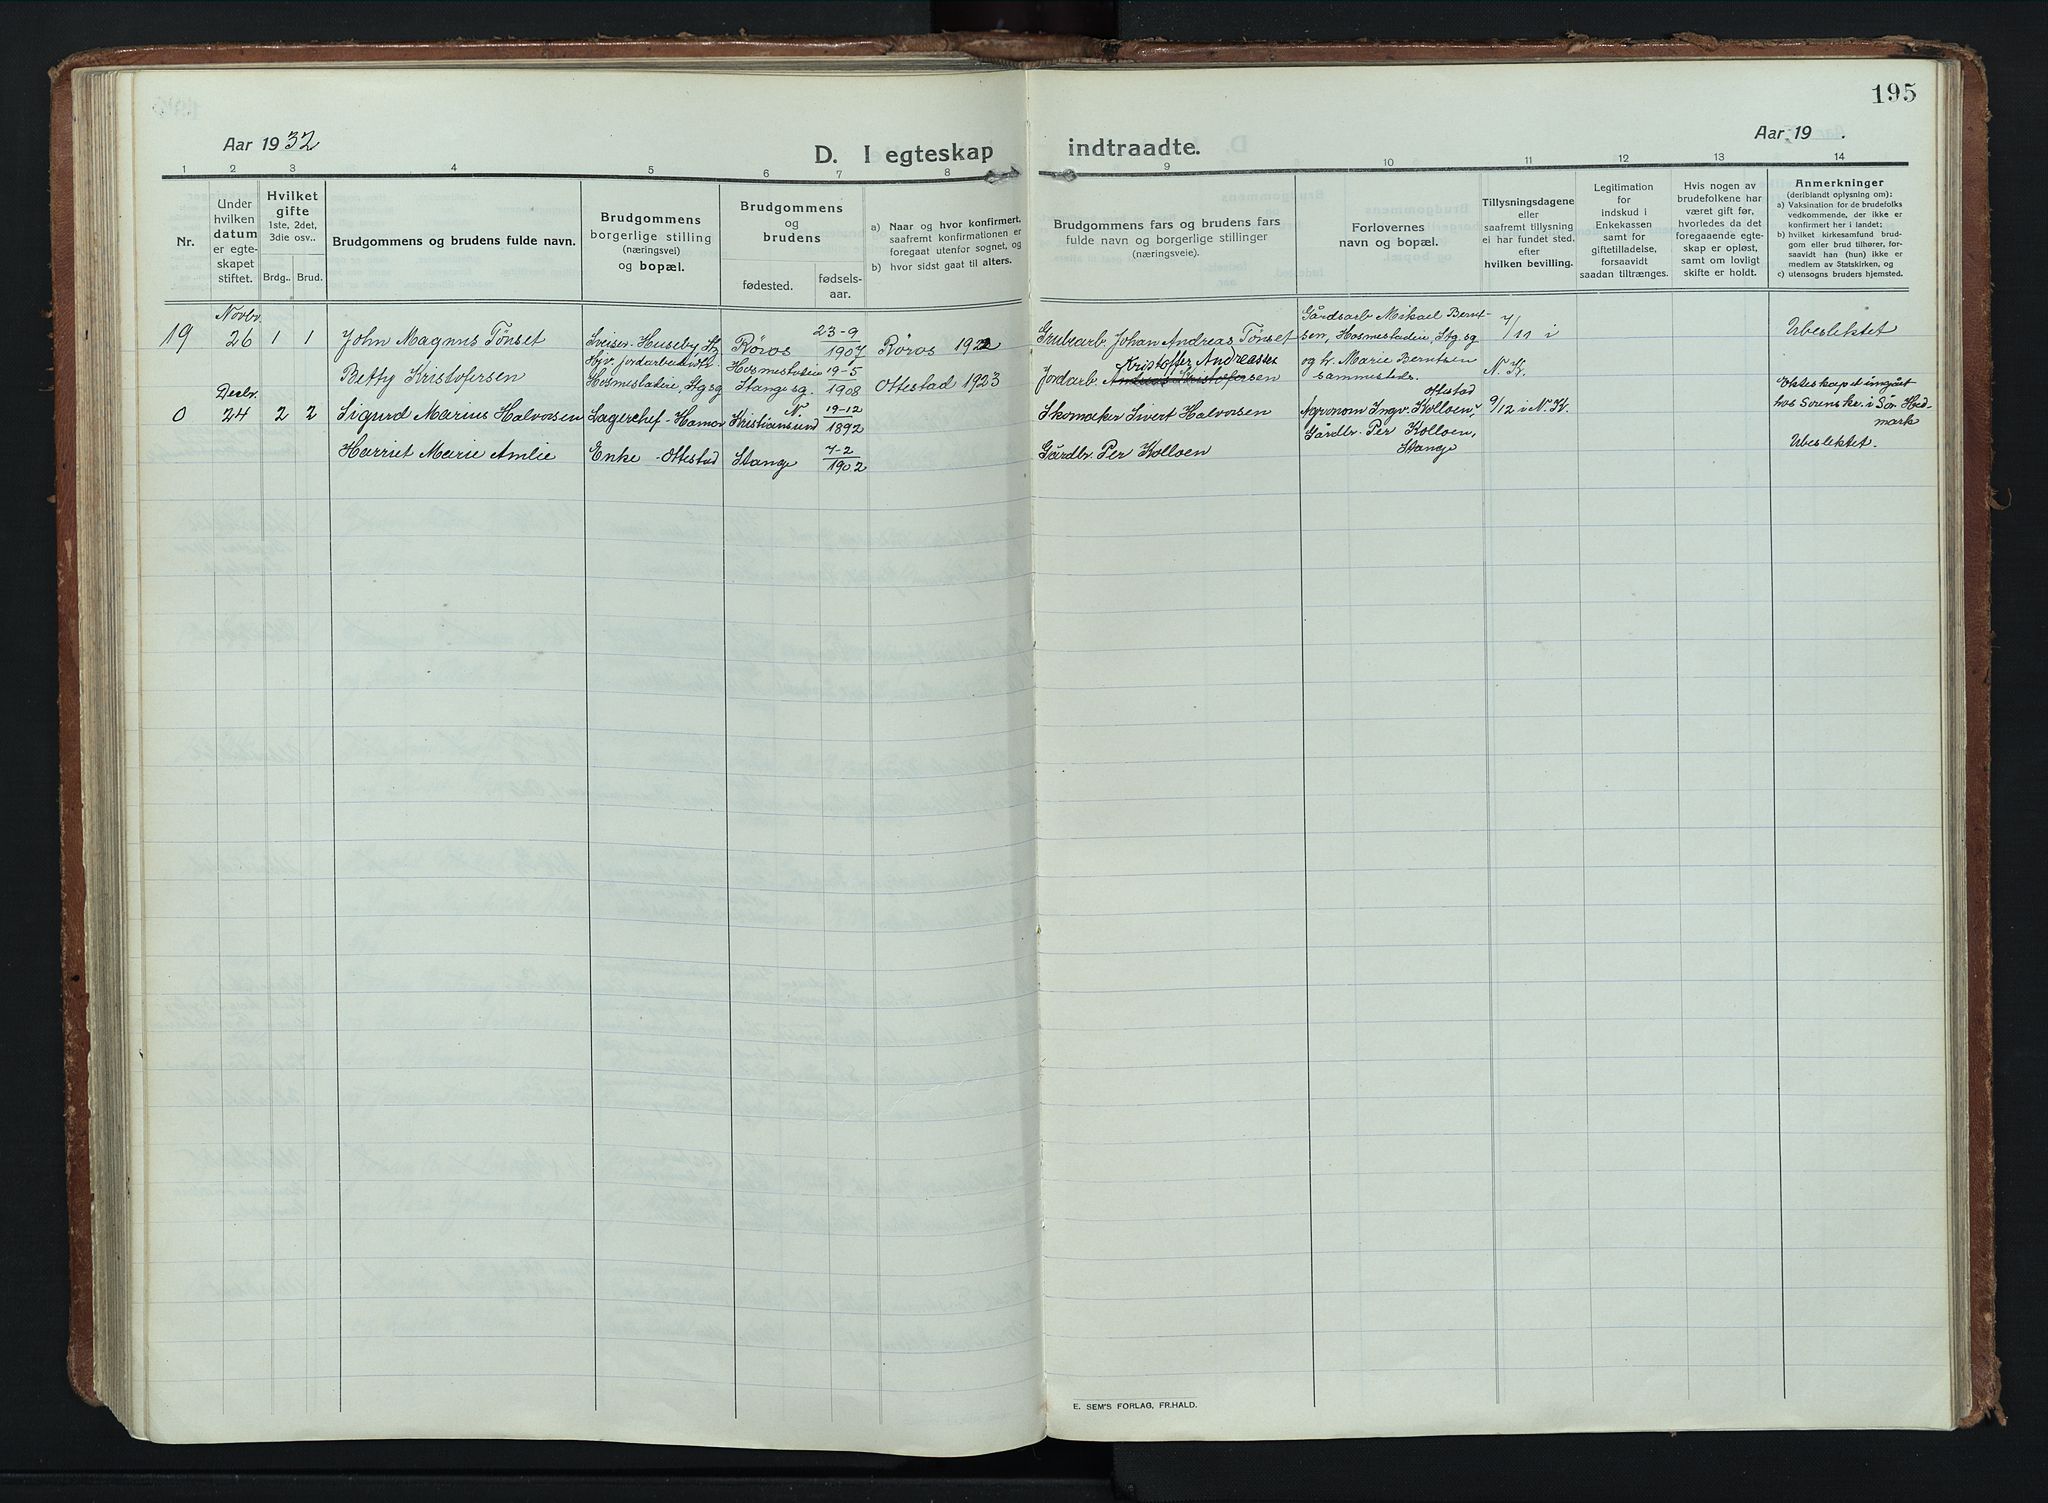 195
Aar 1932
D. I egteskap indtraadte.
Aar 19 .
1 2 3 4 5 6 7 8 9 10 11 12 13 14
Nr.
Under
hvilken
datum
er egte-
skapet
stiftet.
Hvilket
gifte
1ste, 2det,
3die osv..
Brdg.. Brud.
Brudgommens og brudens fulde navn.
Brudgommens
borgerlige stilling
(næringsvei)
og bopæl.
Brudgommens
og
brudens
fødested.
fødsels-
aar.
a) Naar og hvor konfirmert,
saafremt konfirmationen er
foregaat utenfor sognet, og
b) hvor sidst gaat til alters.
Brudgommens fars og brudens fars
fulde navn og borgerlige stillinger
(næringsveie).
Forlovernes
navn og bopæl.
Tillysningsdagene
eller
saafremt tillysning
ei har fundet sted.
efter
hvilken bevilling.
Legitimation
for
indskud i
Enkekassen
samt for
giftetilladelse,
forsaavidt
saadan tiltrænges.
Hvis nogen av
brudefolkene har
været gift før,
hvorledes da det
foregaaende egte-
skap er opløst,
samt om lovligt
skifte er holdt.
Anmerkninger
(deriblandt oplysning om);
a) Vaksination for de brudefolks
vedkommende, der ikke er
konfirmert her i landet;
b) hvilket kirkesamfund brud-
gom eller brud tilhører, for-
saavidt han (hun) ikke er
medlem av Statskirken, og
c) utensogns bruders hjemsted.
Novbr.
19 26 1 1 John Magnus Tønset
Sveiser. Huseby, Stg
Røros
23-9
1907
Røros 1922
Grubearb. Johan Andreas Tønset
Gårdsarb Mikael Bernt-
sen, Hosmestadeie, Stg sg
7/11 i
N. K.
Ubeslektet
Betty Kristofersen
Hjv. jordarbeider
Hosmestadeie, Stg sg
Hosmestadeie
Stange sg.
19-5
1908
Ottestad 1923
Kristoffer Andreassen
Jordarb Andreas Kristofersen
og hr. Marie Berntsen
sammesteds.
Decbr.
0 24 2 2 Sigurd Marius Halvorsen
Lagerchef - Hamar
Kristiansund N.
19-12
1892
Skomaker Sivert Halvorsen
Ottestad
Agronom Ingv. Kolloen,
Gårdbr. Per Kolloen,
Stange
9/12 i N. K.
Ekteskapet inngått
hos Sorenskr. i Sør-Hed-
mark
Ubeslektet.
Harriet Marie Amlie
Enke - Ottestad
Stange
7-2
1902
Gårdbr. Per Kolloen
E. SEM'S FORLAG, FR.HALD.